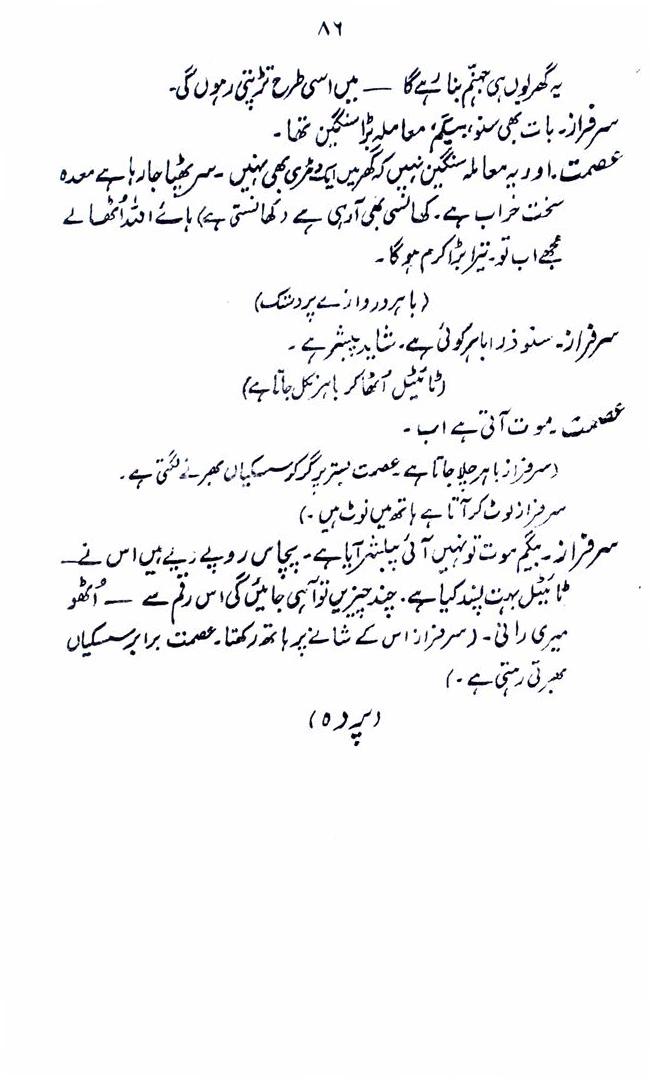 ۸۶
یہ گھر یوں ہی جہنم بنا رہے گا — میں اسی طرح تڑپتی رہوں گی۔
سرفراز۔ بات بھی سنو، بیگم، معاملہ بڑا سنگین تھا۔
عصمت۔ اور یہ معاملہ سنگین نہیں کہ گھر میں ایک دمڑی بھی نہیں۔ سر پھٹا جا رہا ہے معدہ
سخت خراب ہے۔ کھانسی بھی آ رہی ہے (کھانستی ہے) ہائے اللہ اُٹھا لے
مجھے اب تو۔ تیرا بڑا کرم ہوگا۔
(باہر دروازے پر دستک)
سرفراز۔ سنو ذرا باہر کوئی ہے۔ شاید پبلشر ہے۔
(ٹائیٹل اُٹھا کر باہر نکل جاتا ہے)
عصمت۔ موت آتی ہے اب۔
(سرفراز باہر چلا جاتا ہے۔ عصمت بستر پر گر کر سسکیاں بھرنے لگتی ہے۔
سرفراز لوٹ کر آتا ہے ہاتھ میں نوٹ ہیں۔)
سرفراز۔ بیگم موت تو نہیں آئی پبلشر آیا ہے۔ پچاس روپے دیے ہیں اس نے۔
ٹائیٹل بہت پسند کیا ہے۔ چند چیزیں تو آ ہی جائیں گی اس رقم سے — اُٹھو
میری رانی۔ (سرفراز اس کے شانے پر ہاتھ رکھتا۔ عصمت برابر سسکیاں
بھرتی رہتی ہے۔)
(پردہ)